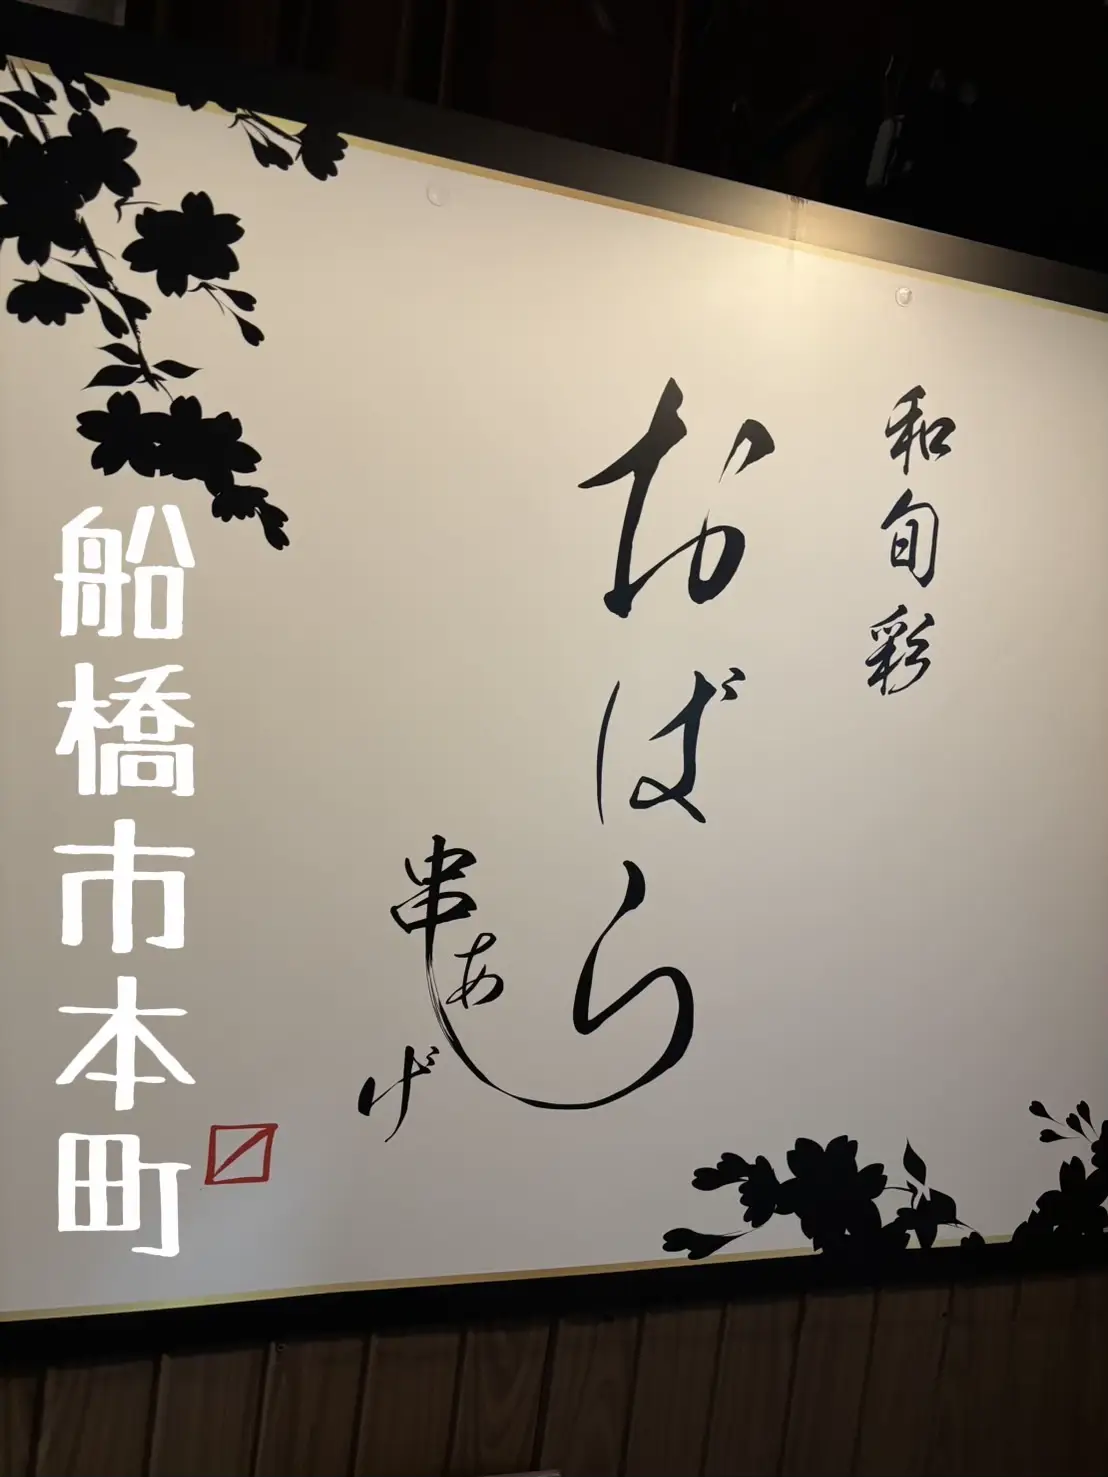 和旬彩
おばら
串あげ
船橋市本町